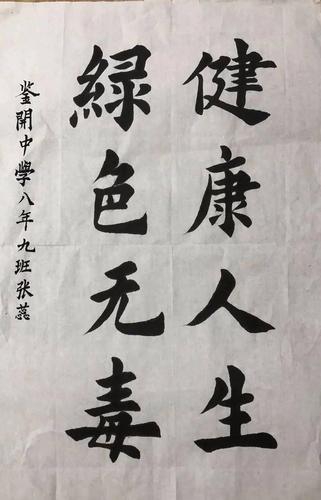 健康人生
緑色无毒
鉴開中學八年九班张蕊